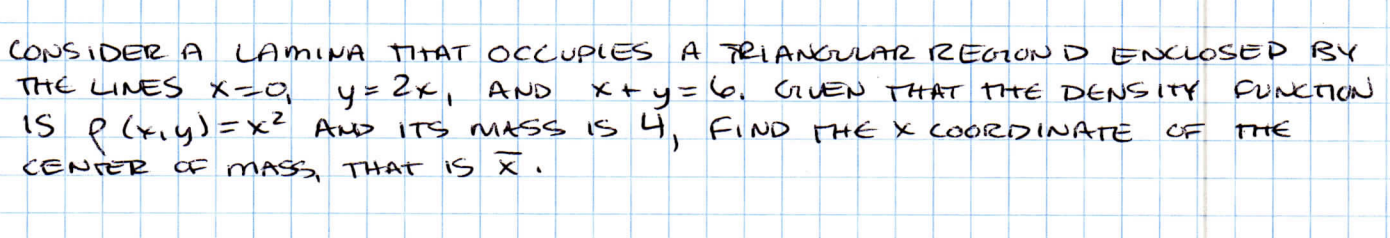 CONSIDER A LAMINA THAT OCCUPIES A TRIANGULAR REGION D ENCLOSED BY
THE LINES x=0, y=2x, AND x+y=6. GIVEN THAT THE DENSITY FUNCTION
IS ρ(x,y)=x² AND ITS MASS IS 4, FIND THE X COORDINATE OF THE
CENTER OF MASS, THAT IS x̄.